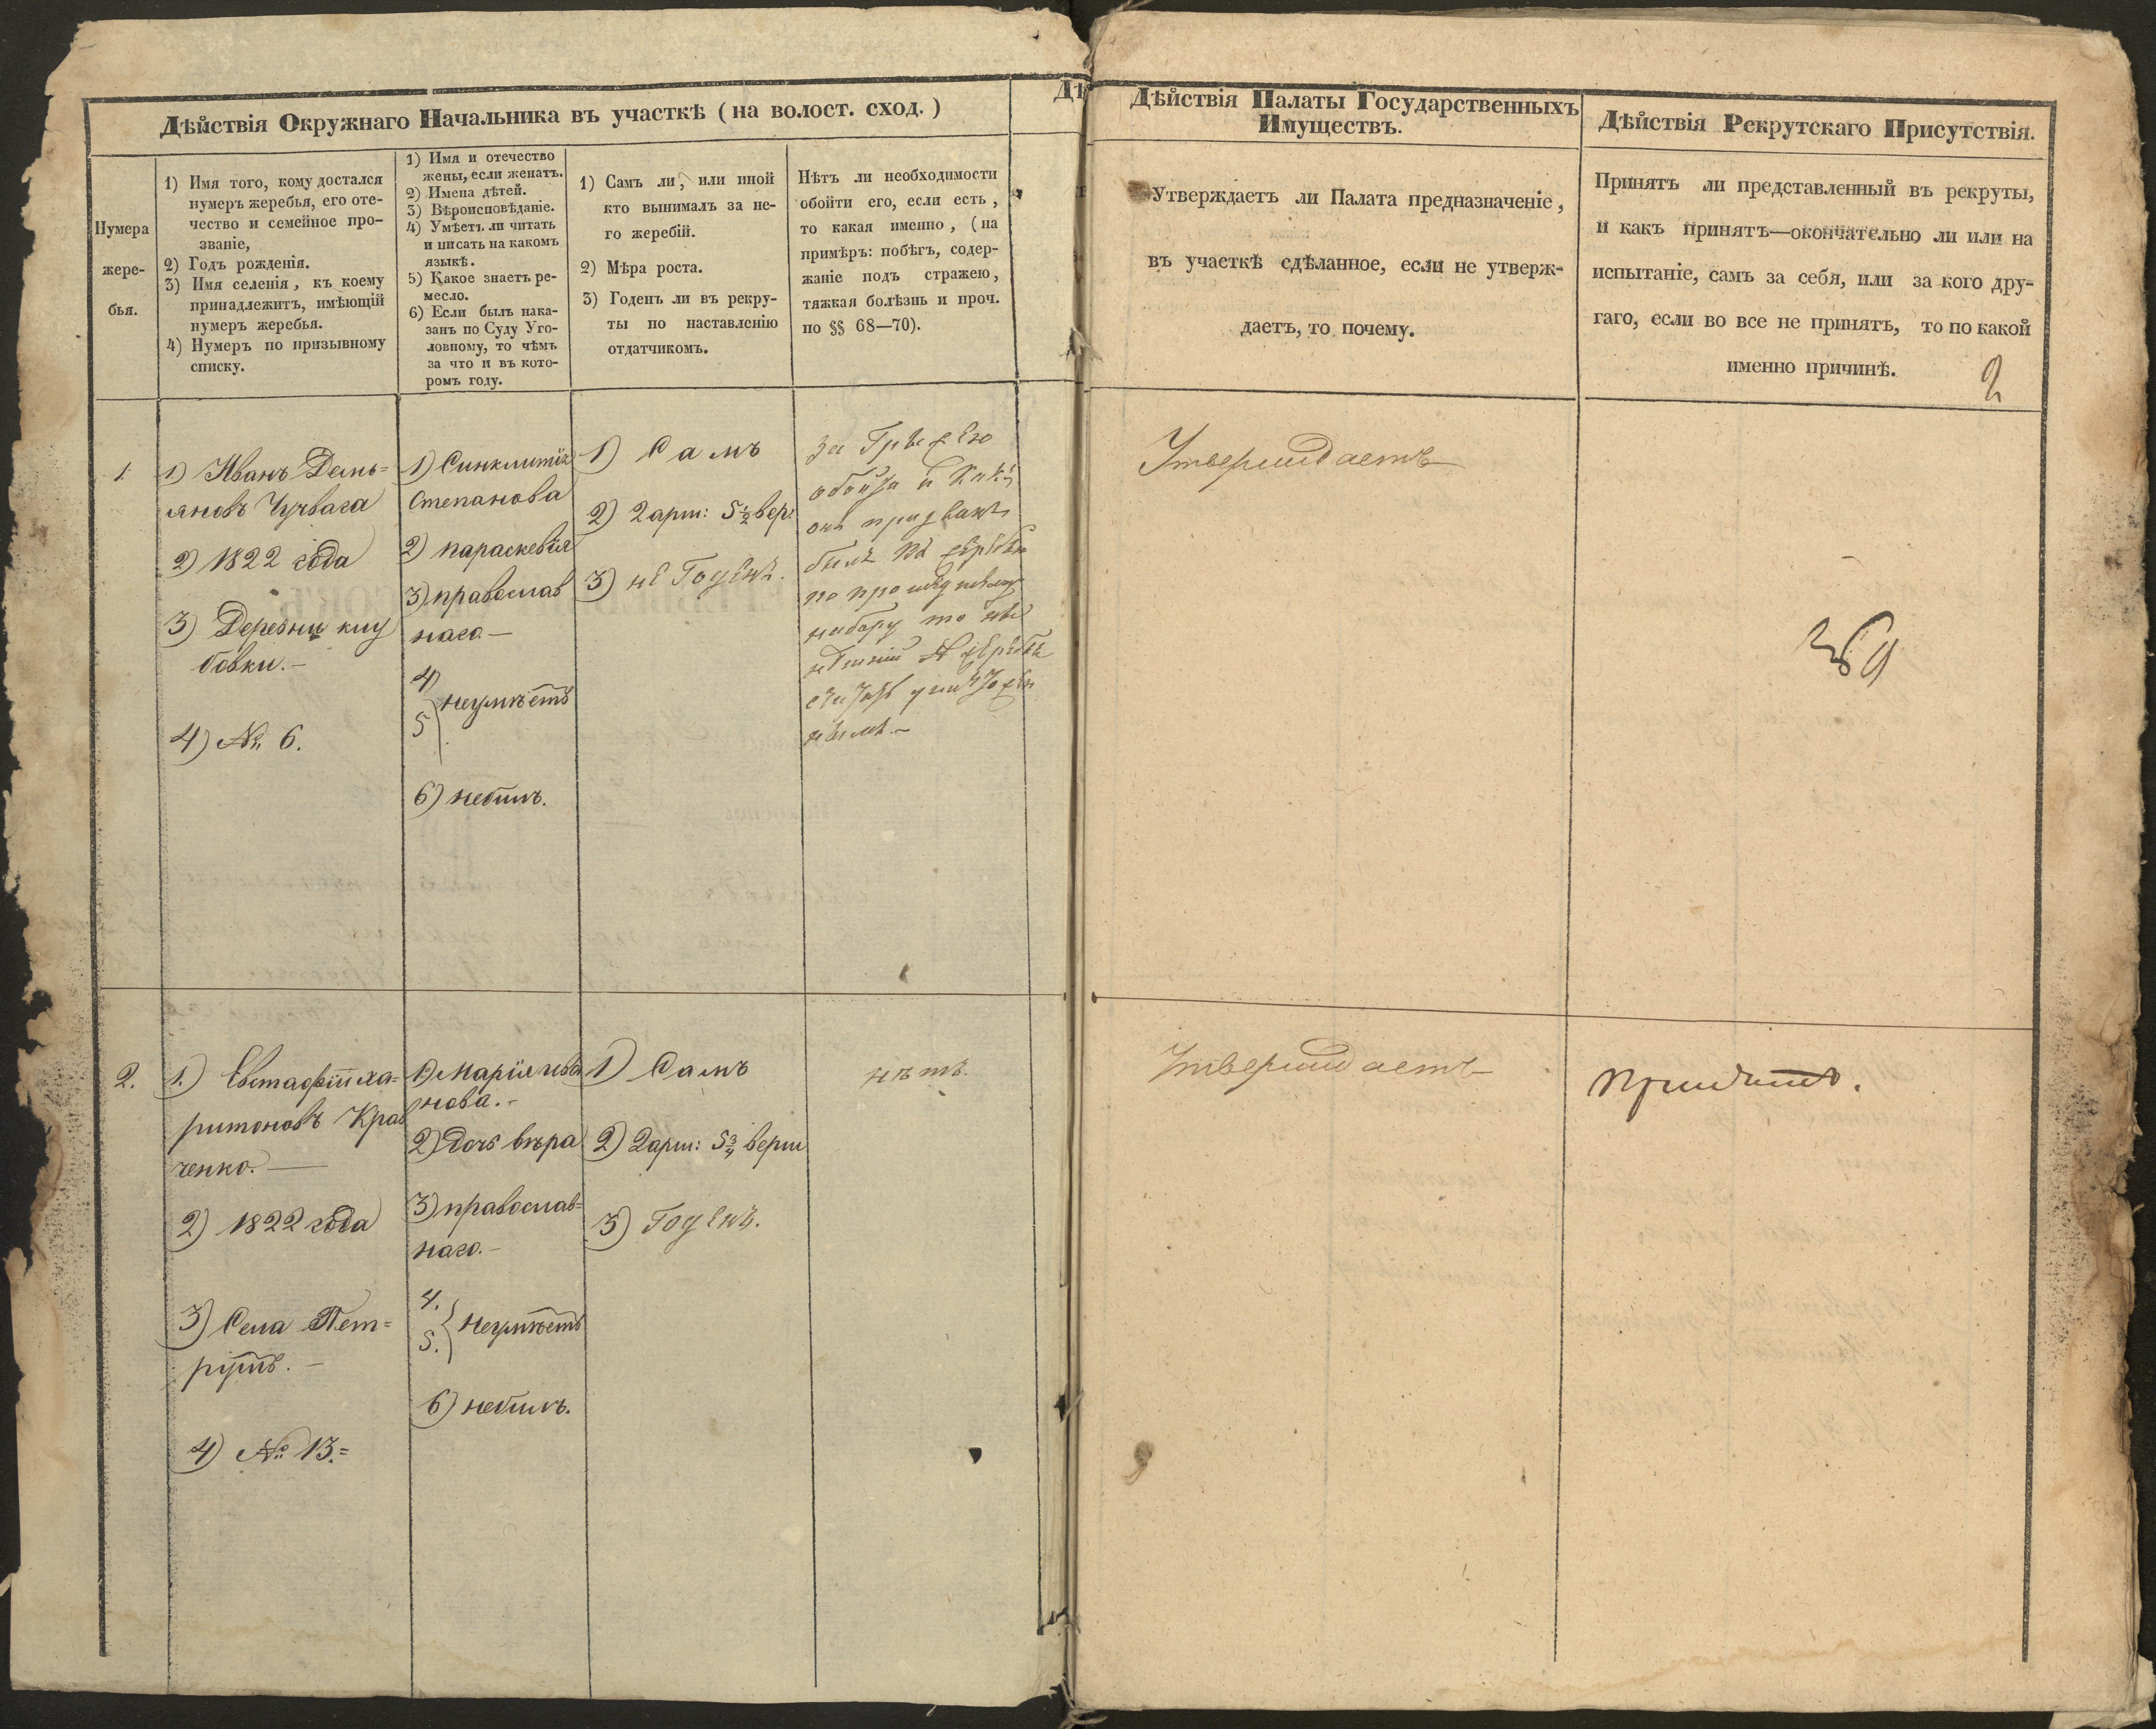 Дѣйствія Окружнаго Начальника въ участкѣ (на волост. сход.)
Нумера
жере-
бья.
1) Имя того, кому достался
нумеръ жеребья, его оте-
чество и семейное про-
званіе,
2) Годъ рожденія.
3) Имя селенія, къ коему
принадлежитъ, имѣющій
нумеръ жеребья.
4) Нумеръ по призывному
списку.
1) Имя и отечество
жены, если женатъ.
2) Имена дѣтей.
3) Вѣроисповѣданіе.
4) Умѣетъ ли читать
и писать на какомъ
языкѣ.
5) Какое знаетъ ре-
месло.
6) Если былъ нака-
занъ по Суду Уго-
ловному, то чѣмъ
за что и въ кото-
ромъ году.
1) Самъ ли, или иной
кто вынималъ за не-
го жеребій.
2) Мѣра роста.
3) Годенъ ли въ рекру-
ты по наставленію
отдатчикомъ.
Нѣтъ ли необходимости
обойти его, если есть,
то какая именно, (на
примѣръ: побѣгъ, содер-
жаніе подъ стражею,
тяжкая болѣзнь и проч.
по §§ 68—70).
1.
1) Иванъ Демь=
яновъ Чучвага
2) 1822 года
3) Деревни клу
бовки.-
4) № 6.
1) Синклитія
Степанова
2) параскевія
3) православ
наго.—
4)
5) неумѣетъ
6) небылъ.
1) Самъ
2) 2 арш: 5½ вер:
3) не Годенъ.
обойти и какъ
онъ призванъ
былъ
по прошедшему
набору то
2.
1.) Евстафій ха=
ритоновъ Крав
ченко.—
2) 1822 года
3) Села Пет=
рутъ.—
4) № 13.=
1) Марія ива
нова.-
2) дочь вѣра
3) православ=
наго.-
4.
5. неумѣетъ
6) небылъ.
1) Самъ
2) 2 арш: 5¾ верш
3) Годенъ.
нѣтъ.
Дѣ
Дѣйствія Палаты Государственныхъ
Имуществъ.
Утверждаетъ ли Палата предназначеніе,
въ участкѣ сдѣланное, если не утверж-
даетъ, то почему.
Утверждаетъ
Утверждаетъ
Дѣйствія Рекрутскаго Присутствія.
Принятъ ли представленный въ рекруты,
и какъ принятъ—окончательно ли или на
испытаніе, самъ за себя, или за кого дру-
гаго, если во все не принятъ, то по какой
именно причинѣ.
2
Принятъ.